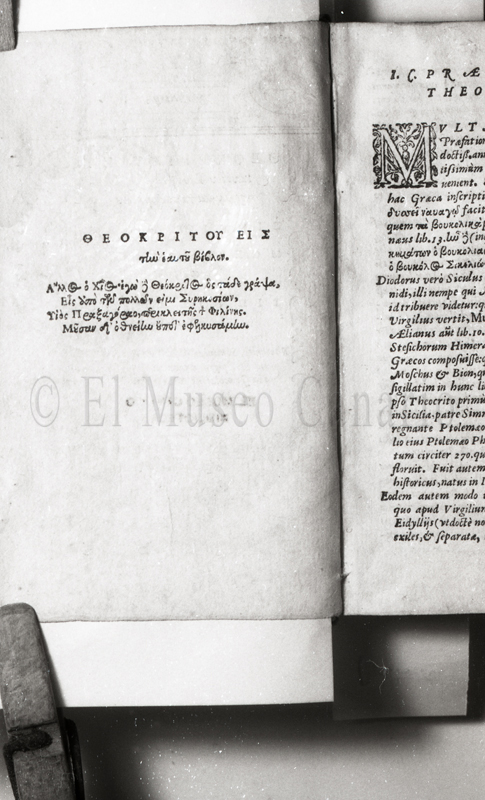 ΘΕΟΚΡΙΤΟΥ ΕΙΣ
τὴν ἑαυτοῦ βίβλον.
Ἄλλος ὁ Χῖος· ἐγὼ δὲ Θεόκριτος ὃς τάδε γράψα,
Εἷς ἀπὸ τῶν πολλῶν εἰμὶ Συρηκοσίων,
Υἱὸς Πραξαγόραο, περικλειτῆς τε Φιλίνης.
Μοῦσαν δ' ὀθνείην οὔποτ' ἐφηκυσάμην.
© El Museo Cana
I. C. PRÆ
THEO
MVLT
Præfation
doctiss. ann
tissimum
uement.
hac Græca inscripti
facit
quem τὰ βουκολικὰ
næus lib. 13.
ὁ βουκολια
Diodorus verò Siculus
nidi, illi nempe qui
id tribuere videtur: q
Virgilius vertit, Mu
Ælianus aūt lib. 10.
Stesichorum Himera
Græcos composuisse: q
Moschus & Bion, qu
sigillatim in hunc li
pso Theocrito primū
in Sicilia, patre Simi
regnante Ptolemæo
lio eius Ptolemæo Ph
tum circiter 270. qu
floruit. Fuit autem
historicus, natus in I
Eodem autem modo i
quo apud Virgilium
Eidyllijs (vt doctè no
exiles, & separata,